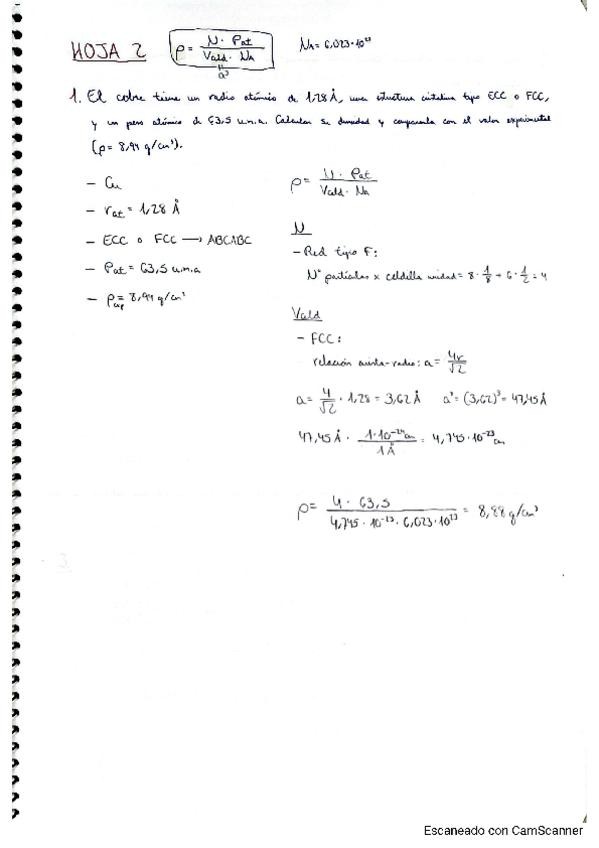 HOJA 2
ρ = N · Pat / Vcld · NA
a³
NA = 6,023·10²³
1. El cobre tiene un radio atómico de 1,28 Å, una estructura cristalina tipo ECC o FCC,
y un peso atómico de 63,5 u.m.a. Calcular su densidad y compararla con el valor experimental
(ρ = 8,94 g/cm³).
- Cu
- rat = 1,28 Å
- ECC o FCC → ABCABC
- Pat = 63,5 u.m.a
- ρexp = 8,94 g/cm³
ρ = N · Pat / Vcld · NA
N
- Red tipo F:
Nº partículas x celdilla unidad = 8 · 1/8 + 6 · 1/2 = 4
Vcld
- FCC:
relación arista-radio: a = 4r/√2
a = 4/√2 · 1,28 = 3,62 Å a³ = (3,62)³ = 47,45 Å
47,45 Å · 1·10⁻²⁴ cm / 1 Å = 4,745·10⁻²³ cm
ρ = 4 · 63,5 / 4,745·10⁻²³ · 6,023·10²³ = 8,88 g/cm³
Escaneado con CamScanner